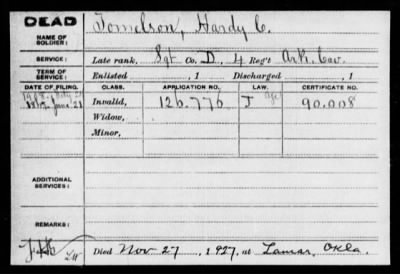 DEAD
NAME OF SOLDIER: Tomelson, Hardy C.
SERVICE: Late rank, Sgt Co. D, 4 Reg't Ark. Cav.
TERM OF SERVICE: Enlisted , 1 Discharged , 1
DATE OF FILING. CLASS. APPLICATION NO. LAW. CERTIFICATE NO.
June 21 Invalid, 126.776 J 90.008
Widow,
Minor,
ADDITIONAL SERVICES:
REMARKS:
Died Nov 27, 1927, at Lamar, Okla.